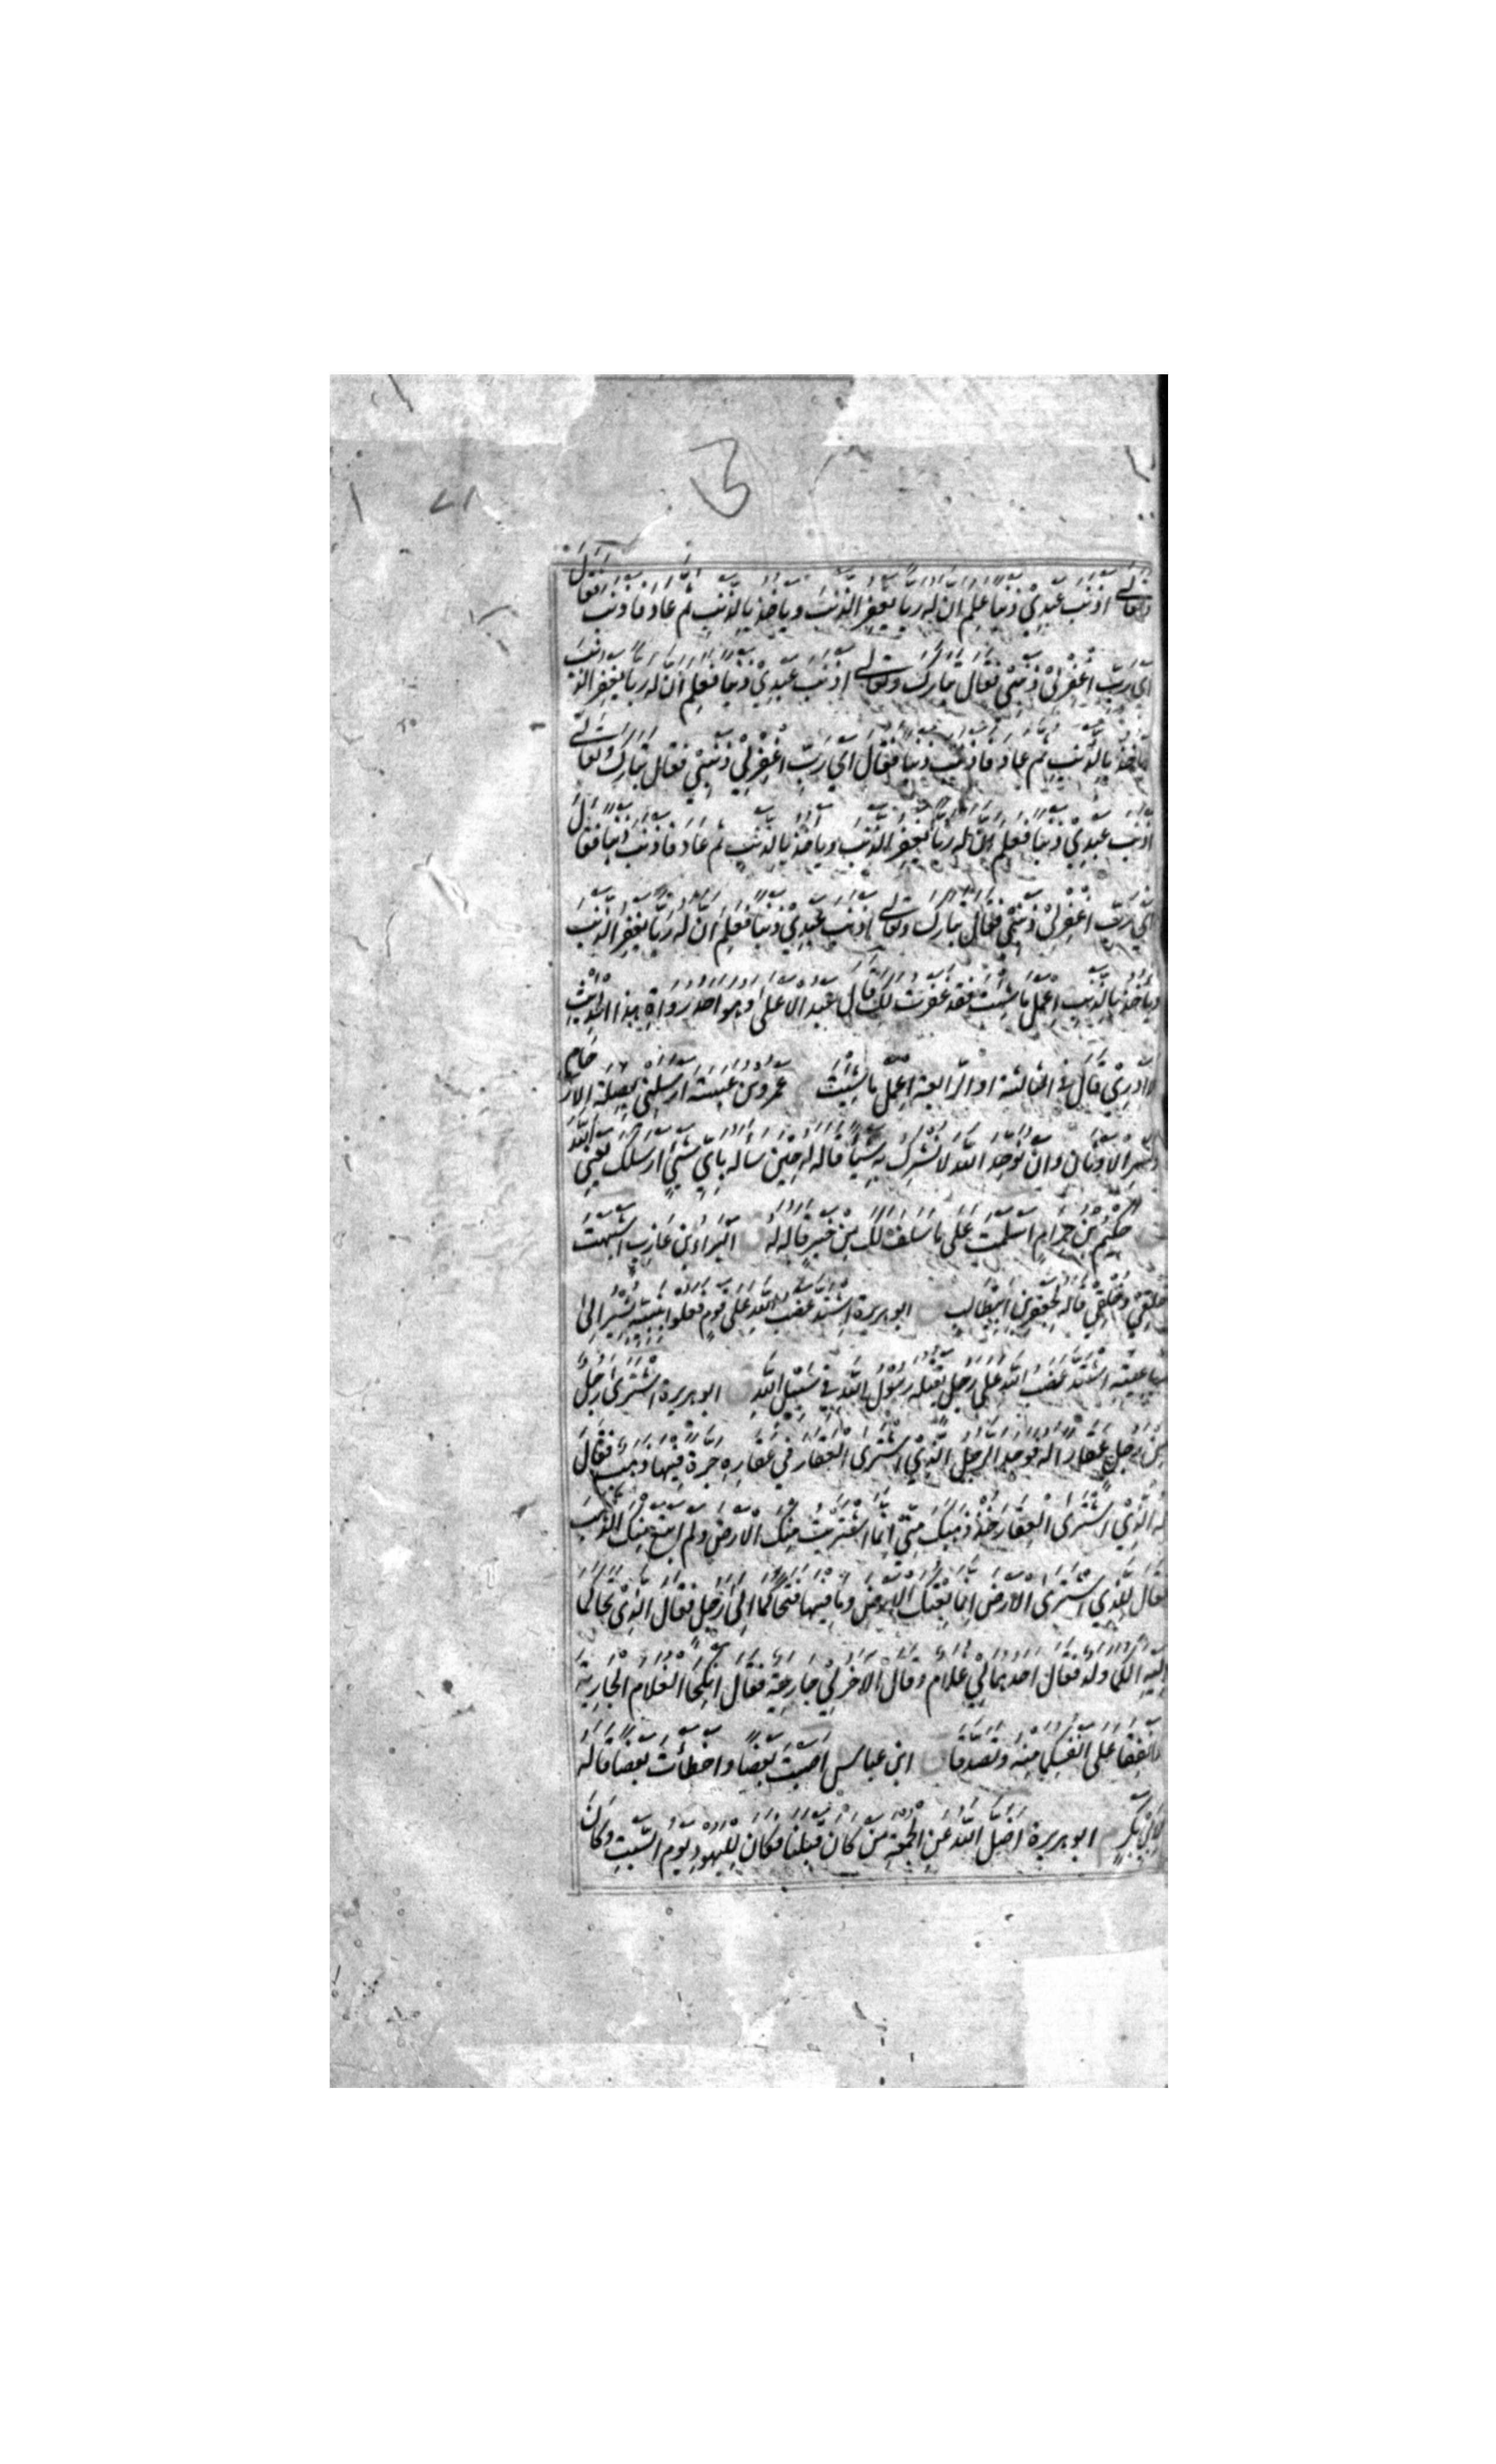 وتعالى اذنب عبدي ذنبا علم ان له ربا يغفر الذنب وياخذ بالذنب ثم عاد فاذنب فقال
اي رب اغفر لي ذنبي فقال تبارك وتعالى اذنب عبدي ذنبا فعلم ان له ربا يغفر الذنب
وياخذ بالذنب ثم عاد فاذنب ذنبا فقال اي رب اغفر لي ذنبي فقال تبارك وتعالى
اذنب عبدي ذنبا فعلم ان له ربا يغفر الذنب وياخذ بالذنب ثم عاد فاذنب ذنبا فقال
اي رب اغفر لي ذنبي فقال تبارك وتعالى اذنب عبدي ذنبا فعلم ان له ربا يغفر الذنب
وياخذ بالذنب اعمل ما شئت فقد غفرت لك قال عبد الاعلى وهو احد رواة هذا الحديث
لا ادري قال في الثالثة او الرابعة اعمل ما شئت عمرو بن عبسة ارسلني بصلة الارحام
وكسر الاوثان وان يوحد الله لا يشرك به شيئا قاله له حين سأله باي شيء ارسلك يعني الله
حكيم بن حزام اسلمت على ما سلف لك من خير قاله له البراء بن عازب اشبهت
خلقي وخلقي قاله لجعفر بن ابيطالب ابو هريرة اشتد غضب الله على قوم فعلوا بنبيه يشير الى
رباعيته اشتد غضب الله على رجل يقتله رسول الله في سبيل الله ابو هريرة اشترى رجل
من رجل عقارا له فوجد الرجل الذي اشترى العقار في عقاره جرة فيها ذهب فقال
له الذي اشترى العقار خذ ذهبك مني انما اشتريت منك الارض ولم ابتع منك الذهب
فقال للذي اشترى الارض انما بعتك الارض وما فيها فتحاكما الى رجل فقال الذي تحاكما
اليه الكما ولد فقال احدهما لي غلام وقال الاخر لي جارية فقال انكحا الغلام الجارية
وانفقا على انفسكما منه وتصدقا ابن عباس اصبت بعضا واخطأت بعضا قاله
لابي بكر ابو هريرة اضل الله عن الجمعة من كان قبلنا فكان لليهود يوم السبت وكان